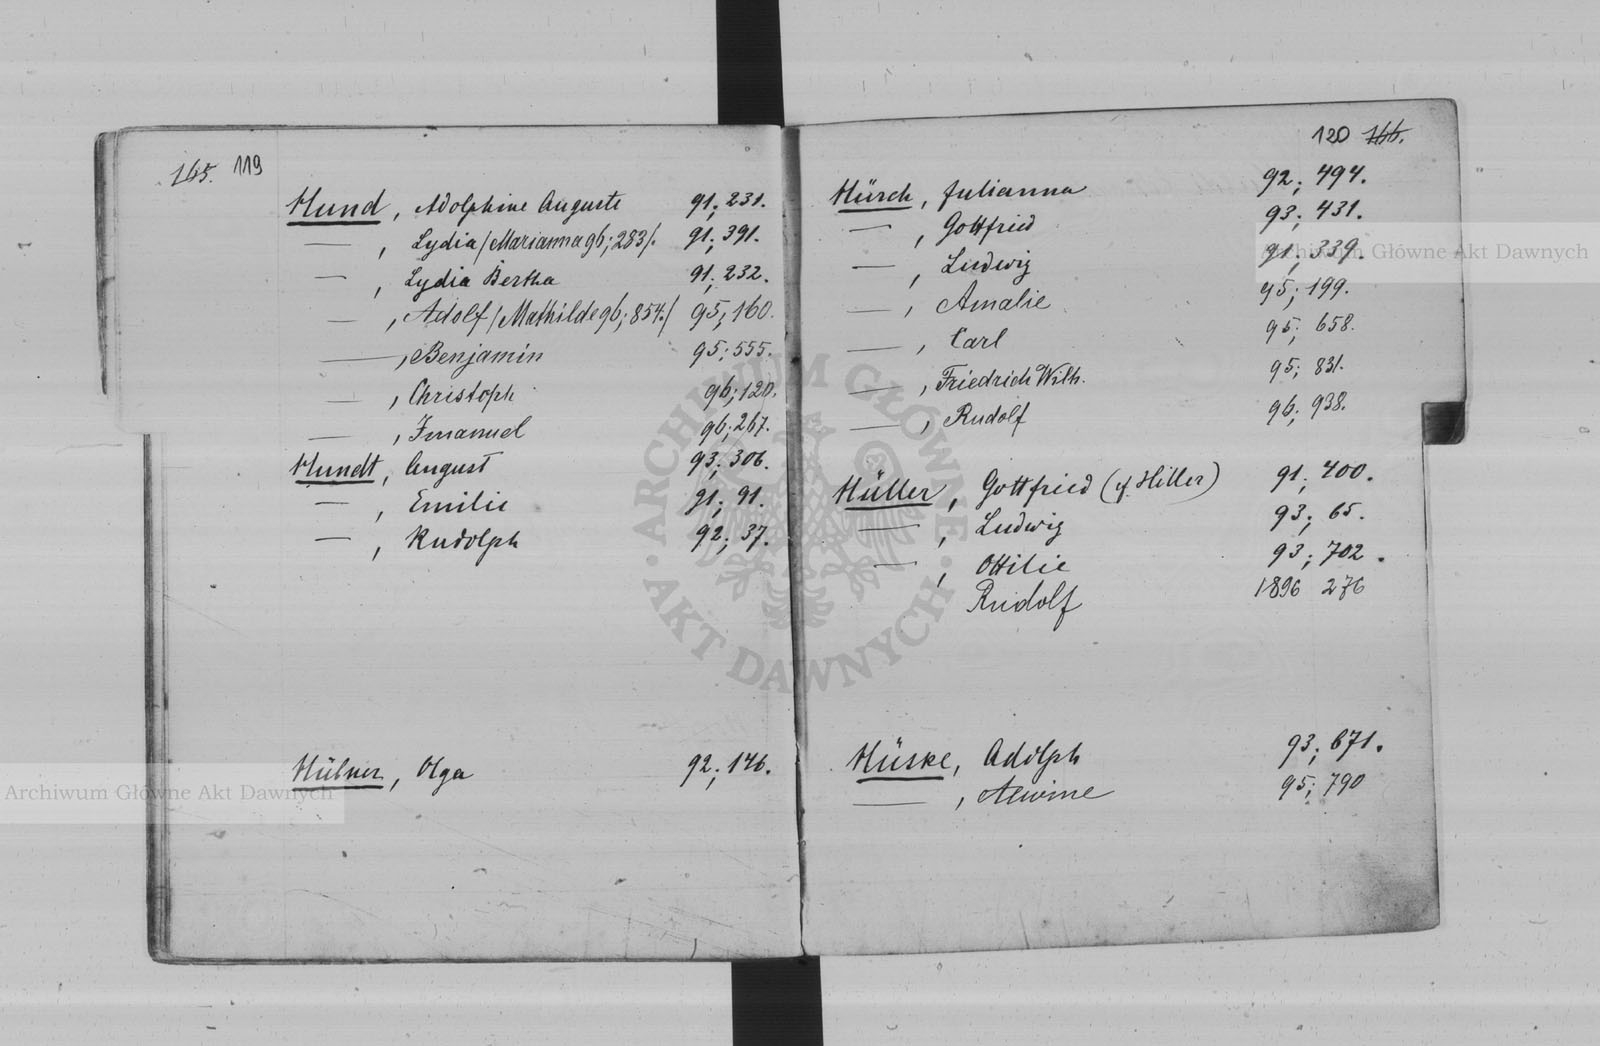 165. 119
Hund, Adolphine Auguste 91; 231.
—, Lydia /Marianna 96; 283/. 91; 391.
—, Lydia Bertha 91; 232.
—, Adolf /Mathilde 96; 854./ 95; 160.
—, Benjamin 95; 555.
—, Christoph 96; 120.
—, Imanuel 96; 267.
Hundt, August 93; 306.
—, Emilie 91; 91.
—, Rudolph 92; 37.
Hübner, Olga 92; 146.
120 166.
Hürch, Julianna 92; 494.
—, Gottfried 93; 431.
—, Ludwig 91; 339.
—, Amalie 95; 199.
—, Carl 95; 658.
—, Friedrich Wilh. 95; 831.
—, Rudolf 96; 938.
Hüller, Gottfried (cf. Hiller) 91; 400.
—, Ludwig 93; 65.
—, Ottilie 93; 702.
Rudolf 1896 276
Hüske, Adolph 93; 671.
—, Alwine 95; 790
Archiwum Główne Akt Dawnych
Archiwum Główne Akt Dawnych
ARCHIWUM GŁÓWNE
AKT DAWNYCH